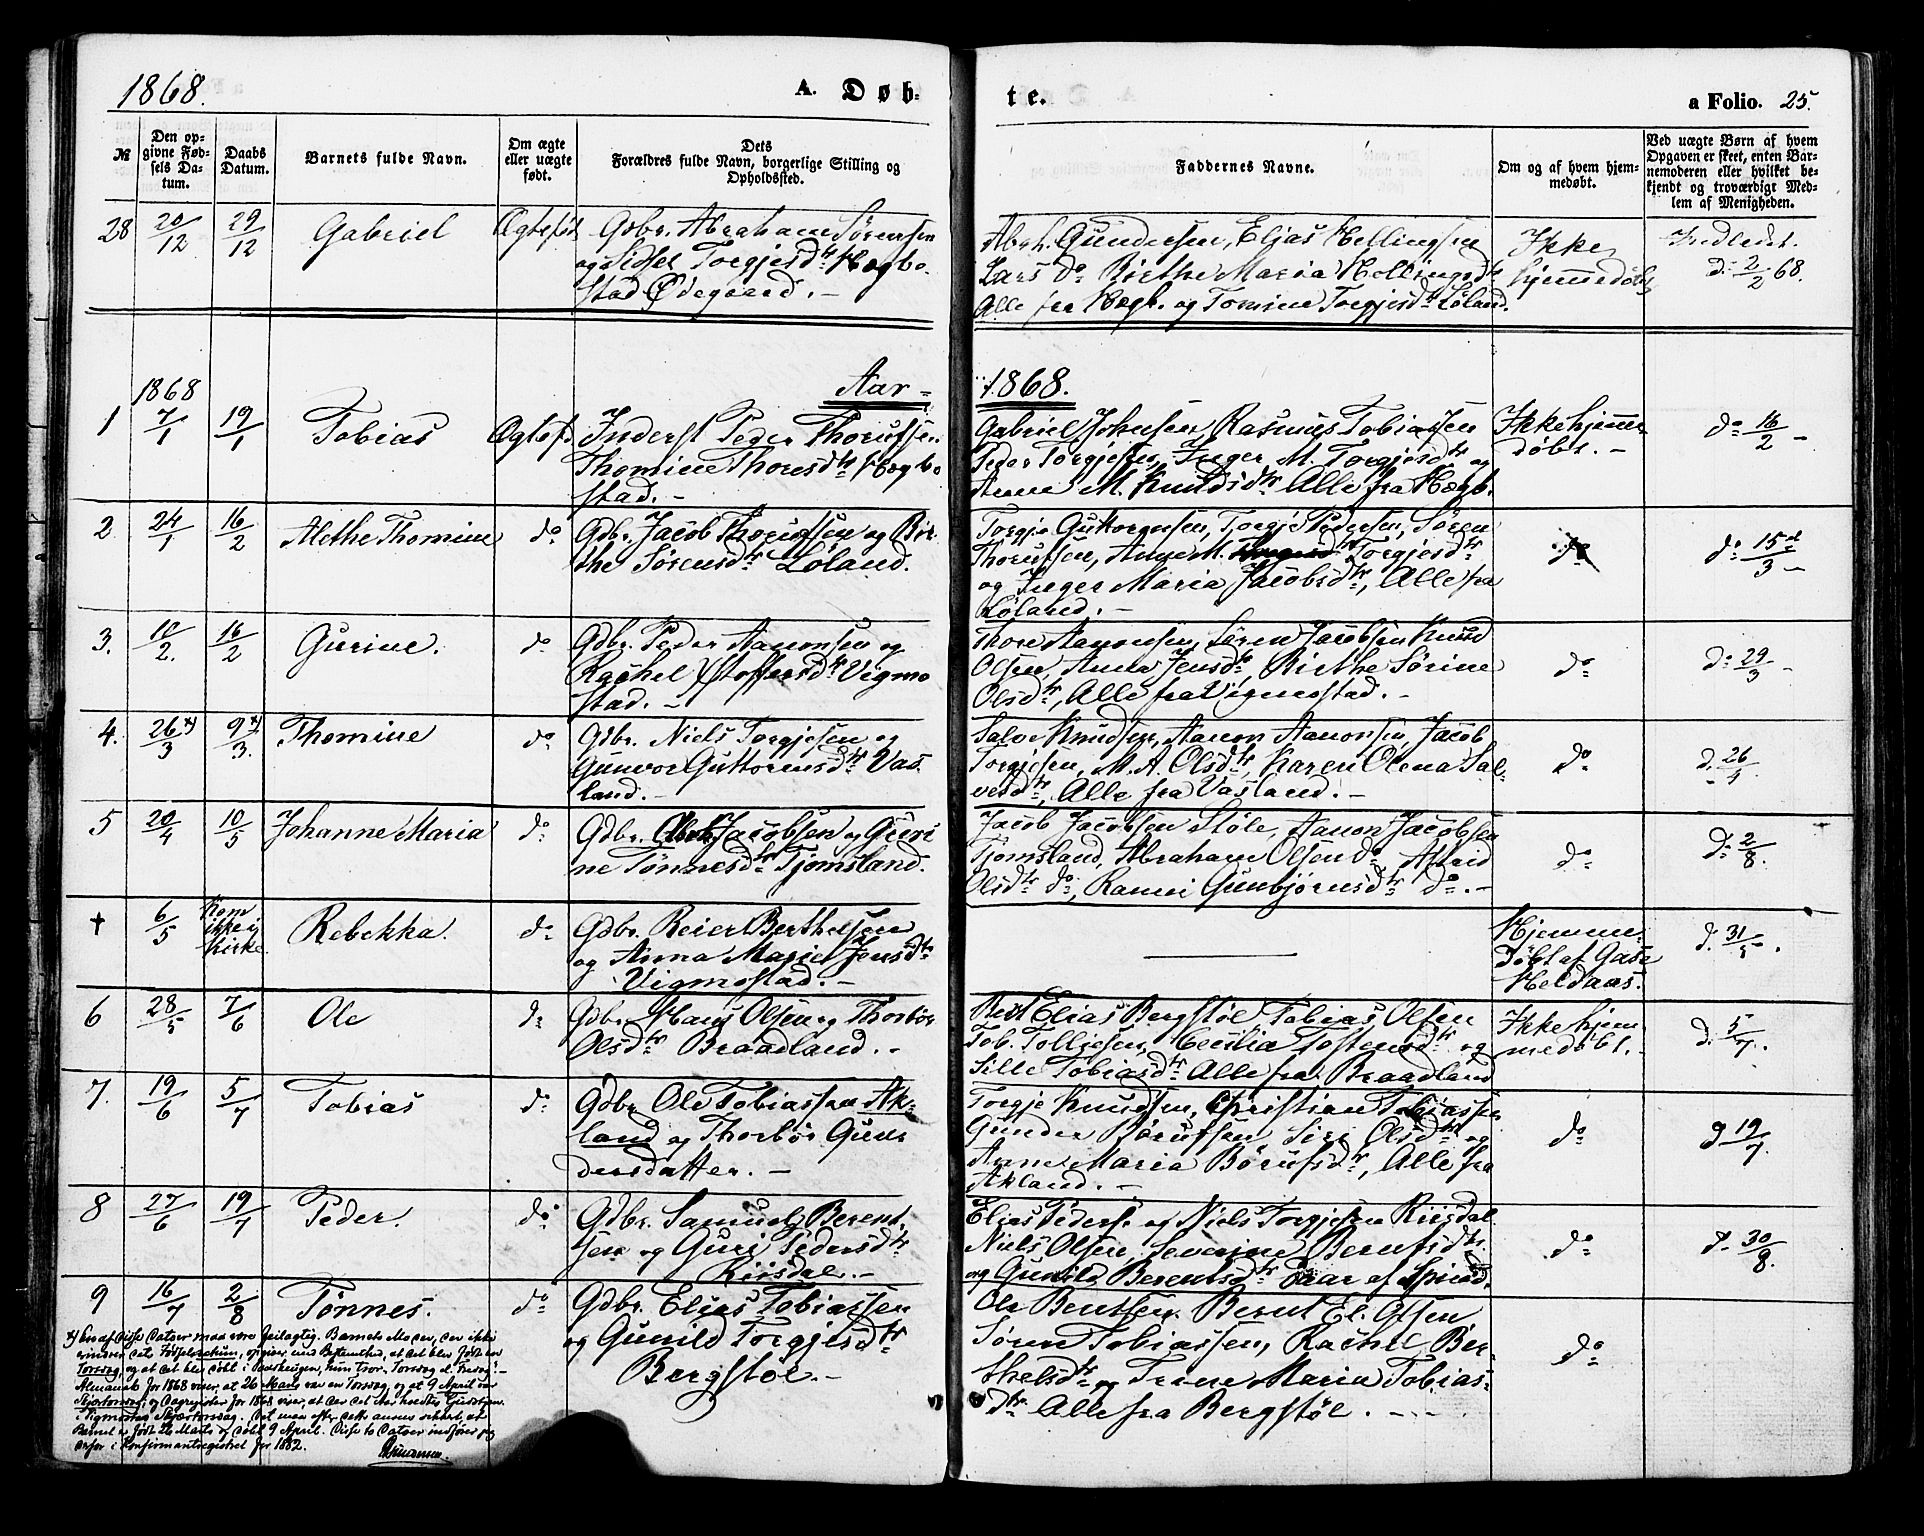 1868.
A. Døb-
te.
a Folio. 25.
№
Den op-
givne Fød-
sels Da-
tum.
Daabs
Datum.
Barnets fulde Navn.
Om ægte
eller uægte
født.
Dets
Forældres fulde Navn, borgerlige Stilling og
Opholdssted.
Faddernes Navne.
Om og af hvem hjem-
medøbt.
Ved uægte Børn af hvem
Opgaven er skeet, enten Bar-
nemoderen eller hvilket be-
kjendt og troværdigt Med-
lem af Menigheden.
28 20/12 29/12 Gabriel Ægtefdt Gdbr. Abraham Sørensen
og Sidsel Torgjesdtr Hægbo-
stad Ødegaard. -
Abrh. Gundersen, Elias Hellingsen
Lars do Birthe Maria Hollingsdtr
Alle fra Hægb. og Tomine Torgjesdtr Løland.
Ikke
hjemmedøbt
Indledet.
d: 2/2 68.
Aar-
1868.
1868
1 7/1 19/1 Tobias Ægtefd. Inderst Peder Thorufsen
Thomine Thoresdtr Hægbo
stad. -
Gabriel Johnsen, Rasmus Tobiassen
Peder Torgjesen, Inger M. Torgjesdtr og
Anne M. Knudsdtr Alle fra Hægb.
Ikke hjemme-
døbt. -
do 16/2 -
2. 24/1 16/2 Alethe Thomine do Gdbr. Jacob Thorufsen og Bir-
the Sørensdtr Løland.
Torgje Guttormsen, Torgje Pedersen, Søren
Thorufsen, Anne M. Torgjesdtr
og Inger Maria Jacobsdtr, Alle fra
Løland. -
do
do 15/3 -
3. 10/2. 16/2 Gurine. do Gdbr. Peder Aanonsen og
Rachel Støffersdtr Vigmo
stad. -
Thore Aanonsen, Søren Jacobsen Knud
Olsen, Anna Jensdtr, Birthe Sørine
Olsdtr, Alle fra Vigmostad. -
do
d: 29/3 -
4. 26/3 *) 9/3. *) Thomine do Gdbr. Niels Torgjesen og
Gunvor Guttormsdtr Vas-
land. -
Salve Knudsen, Aanon Aanonsen, Jacob
Torgjesen, M. A. Olsdtr, Karen Olena Sal-
vesdtr, Alle fra Vasland. -
do
d. 26/4.
5 20/4 10/5 Johanne Maria do Gdbr. Jacobsen og Guri-
ne Tønnesdtr Tjomsland.
Jacob Jacobsen Støle, Aanon Jacobsen
Tjomsland, Abraham Olsen do, Astrid
Olsdtr do, Ranni Gunbjørnsdtr do. -
do
d: 2/8.
† 6/5 Kom
ikke i
Kirke. Rebekka. do Gdbr. Reier Berthelsen
og Anna Marie Jensdtr
Vigmostad. -
Hjemme-
døbt af
Heldaas.
d. 31/5.
6 28/5 7/6 Ole do Gdbr. Hans Olsen og Thorbør
Olsdtr Braadland. -
Elias Bergstøl Tobias Olsen
Tob. Tolljesen, Cecilia Tostensdtr og
Sille Tobiasdtr Alle fra Braadland
Ikke hjem-
medøbt. -
d. 5/7.
7. 19/6 5/7 Tobias do Gdbr Ole Tobiassen Ak-
land og Thorbør Gun-
dersdatter. -
Torgje Knudsen, Christian Tobiassen
Gunder Børufsen, Siri Olsdtr og
Anne Maria Børufsdtr, Alle fra
Akland. -
do
d 19/7.
8 27/6 19/7 Peder. do Gdbr. Samuel Berent-
sen og Guri Pedersdtr
Riisdal. -
Elias Peders. og Niels Torgjesen Riisdal
Niels Olsen, Severine Berntsdtr
og Gunild Berentsdtr
do
d. 30/8.
9 16/7 2/8 Tønnes. do Gdbr. Elias Tobiassen
og Gunild Torgjesdtr
Bergstøl. -
Ole Bentsen, Bernt El. Olsen
Søren Tobiassen, Rachel Ber-
thelsdtr og Trine Maria Tobias-
dtr Alle fra Bergstøl. - -
do
*) En af disse Datoer maa være feilagtig. Barnets Moder, der ikke
erindrer dets Fødselsdatum, opgiver med Bestemthed, at det blev født en
Torsdag, og at det blev døbt i Paaskeugen, hun tror Torsdag el. Fredag.
Almanak for 1868 viser, at 26 Marts var en Torsdag, og at 9 April var
Skjærtorsdag; og Dagregister for 1868 viser, at der det Aar holdtes Gudstjen.
i Vigmostad Skjærtorsdag. Det maa efter dette ansees sikkert, at
Barnet er født 26 Marts og døbt 9 April. Disse to Datoer indfører jeg
derfor i Konfirmantregistret for 1882.